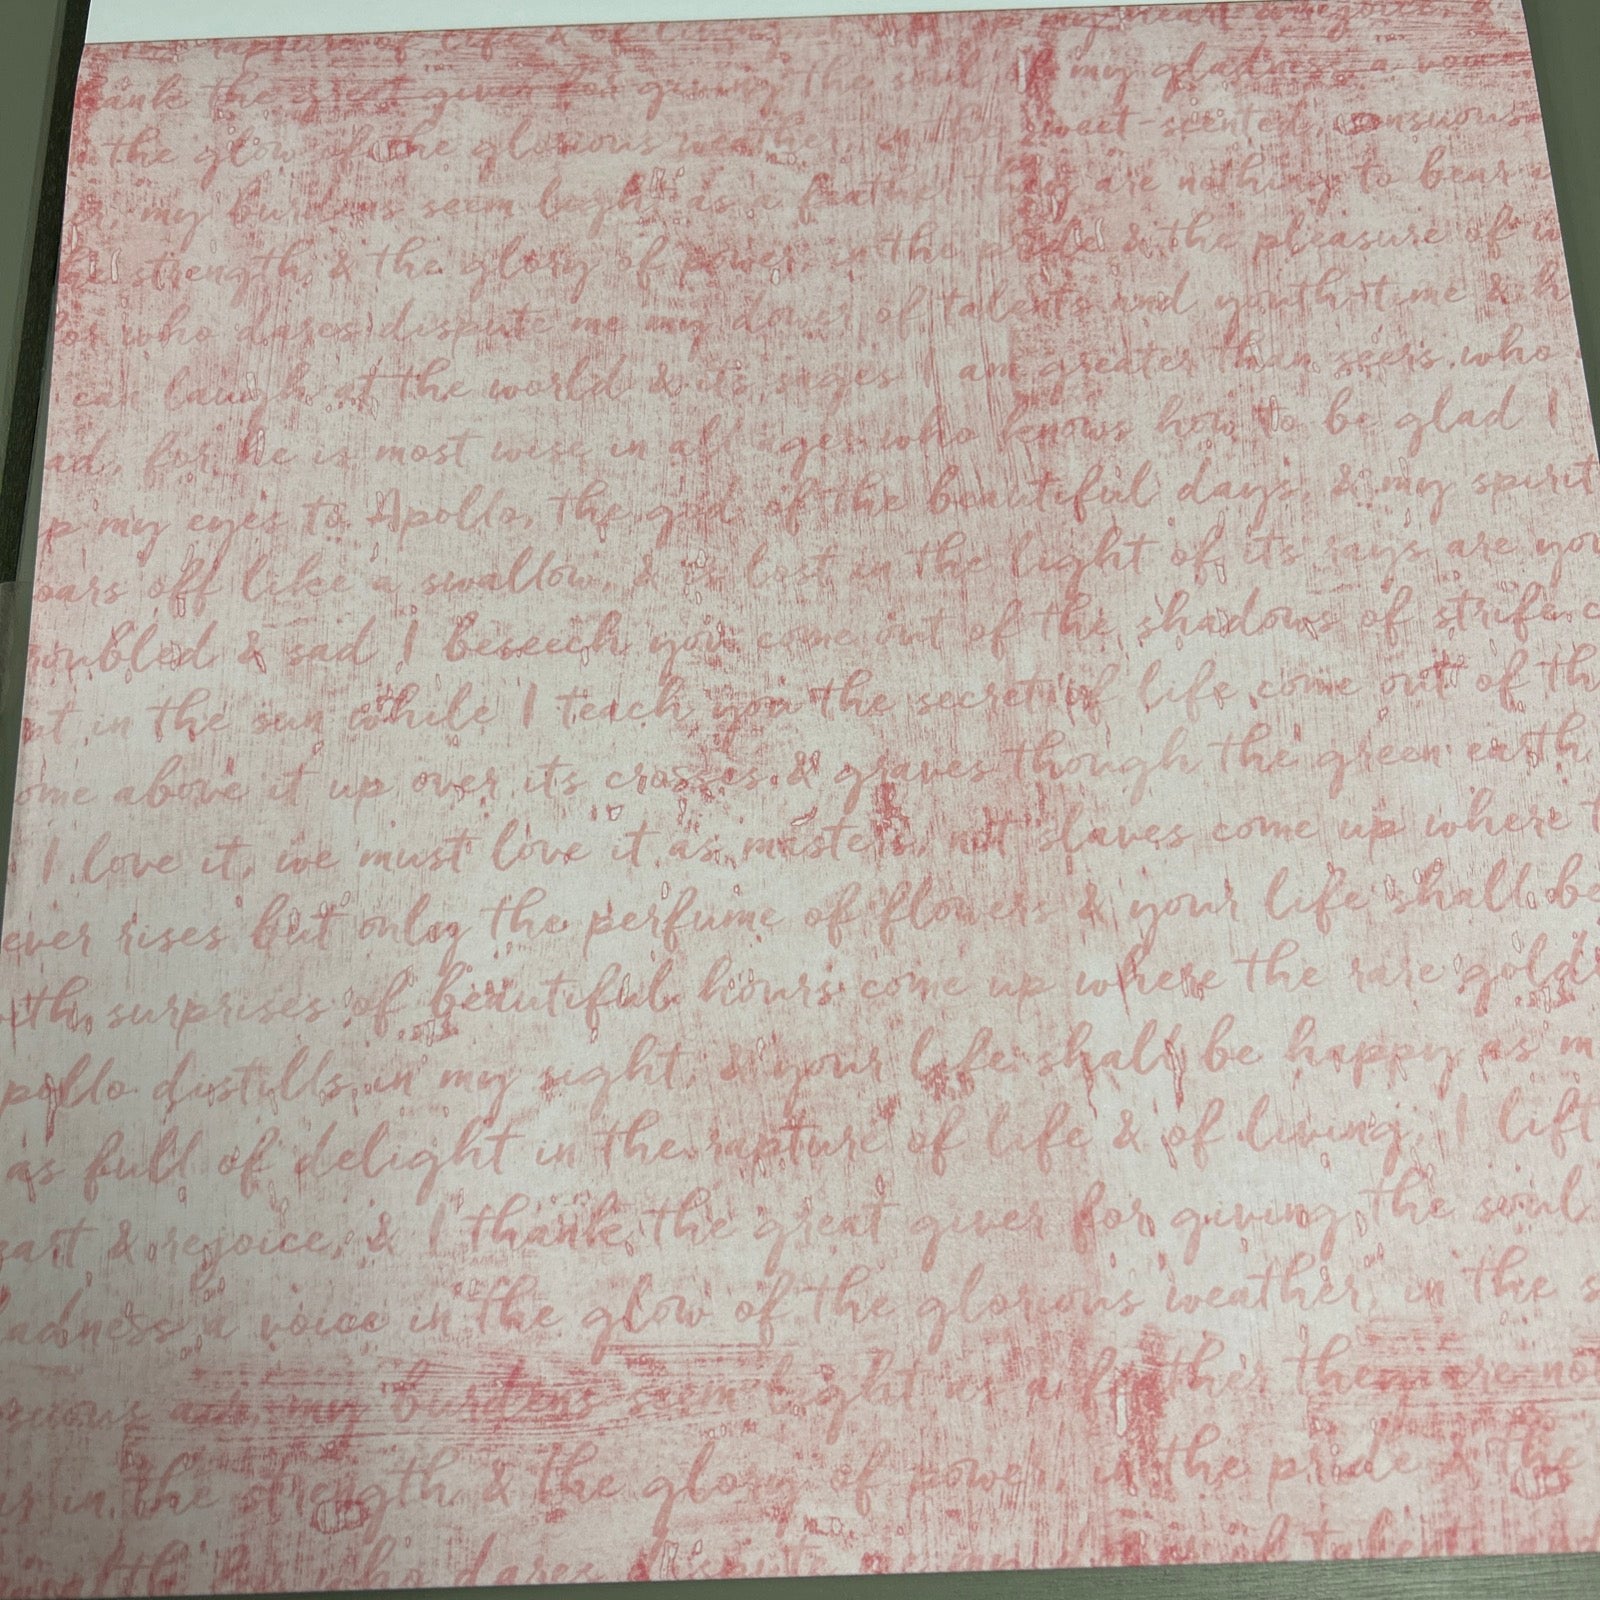 rapture of life & of living my heart & rejoice, &
thank the great giver for giving the soul of my gladness a voice
the glow of the glorious weather, in the sweet-scented, sensuous
air, my burdens seem light as a feather they are nothing to bear
the strength, & the glory of power, in the pride & the pleasure of
for who dares dispute me my dower of talents and youth-time & h
can laugh at the world & its sages I am greater than seers who
ad, for he is most wise in all ages who knows how to be glad I
p my eyes to Apollo, the god of the beautiful days, & my spirit
oars off like a swallow, & is lost in the light of its rays are you
roubled & sad I beseech you come out of the shadows of strife c
ut in the sun while I teach you the secret of life come out of th
ome above it up over its crosses & graves though the green earth
I love it, we must love it as masters, not slaves come up where t
ever rises but only the perfume of flowers & your life shall be
ith surprises of beautiful hours come up where the rare golden
pollo distills in my sight, & your life shall be happy as m
as full of delight in the rapture of life & of living, I lift
eart & rejoice, & I thank the great giver for giving the soul
ladness a voice in the glow of the glorious weather, in the s
nsuous air, my burdens seem light as a feather they are not
ar in the strength & the glory of power, in the pride & the
wealth for who dares dispute me my dower of talents